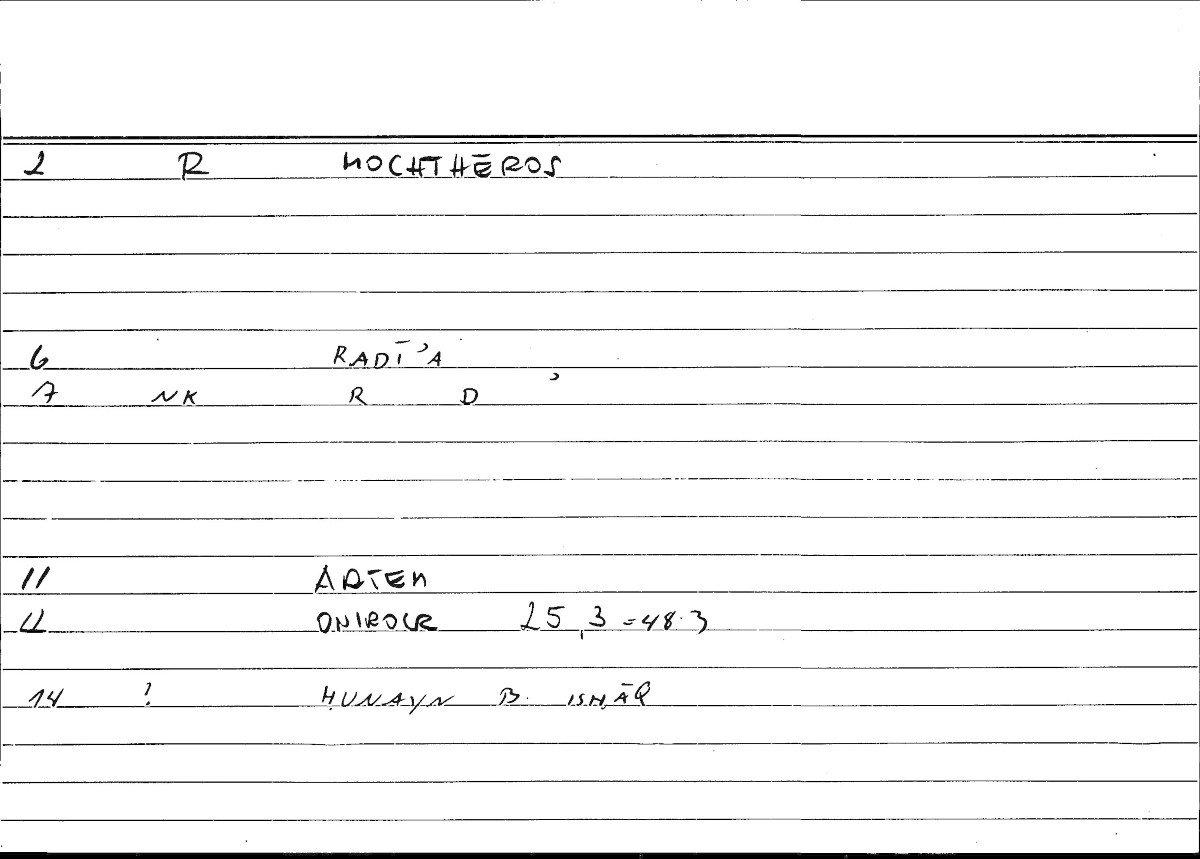 2 R MOCHTHĒROS
6 RADĪ'A
7 NK R D '
11 ARTEM
12 ONIROCR 25,3 = 48.3
14 ? ḤUNAYN B. ISḤĀQ